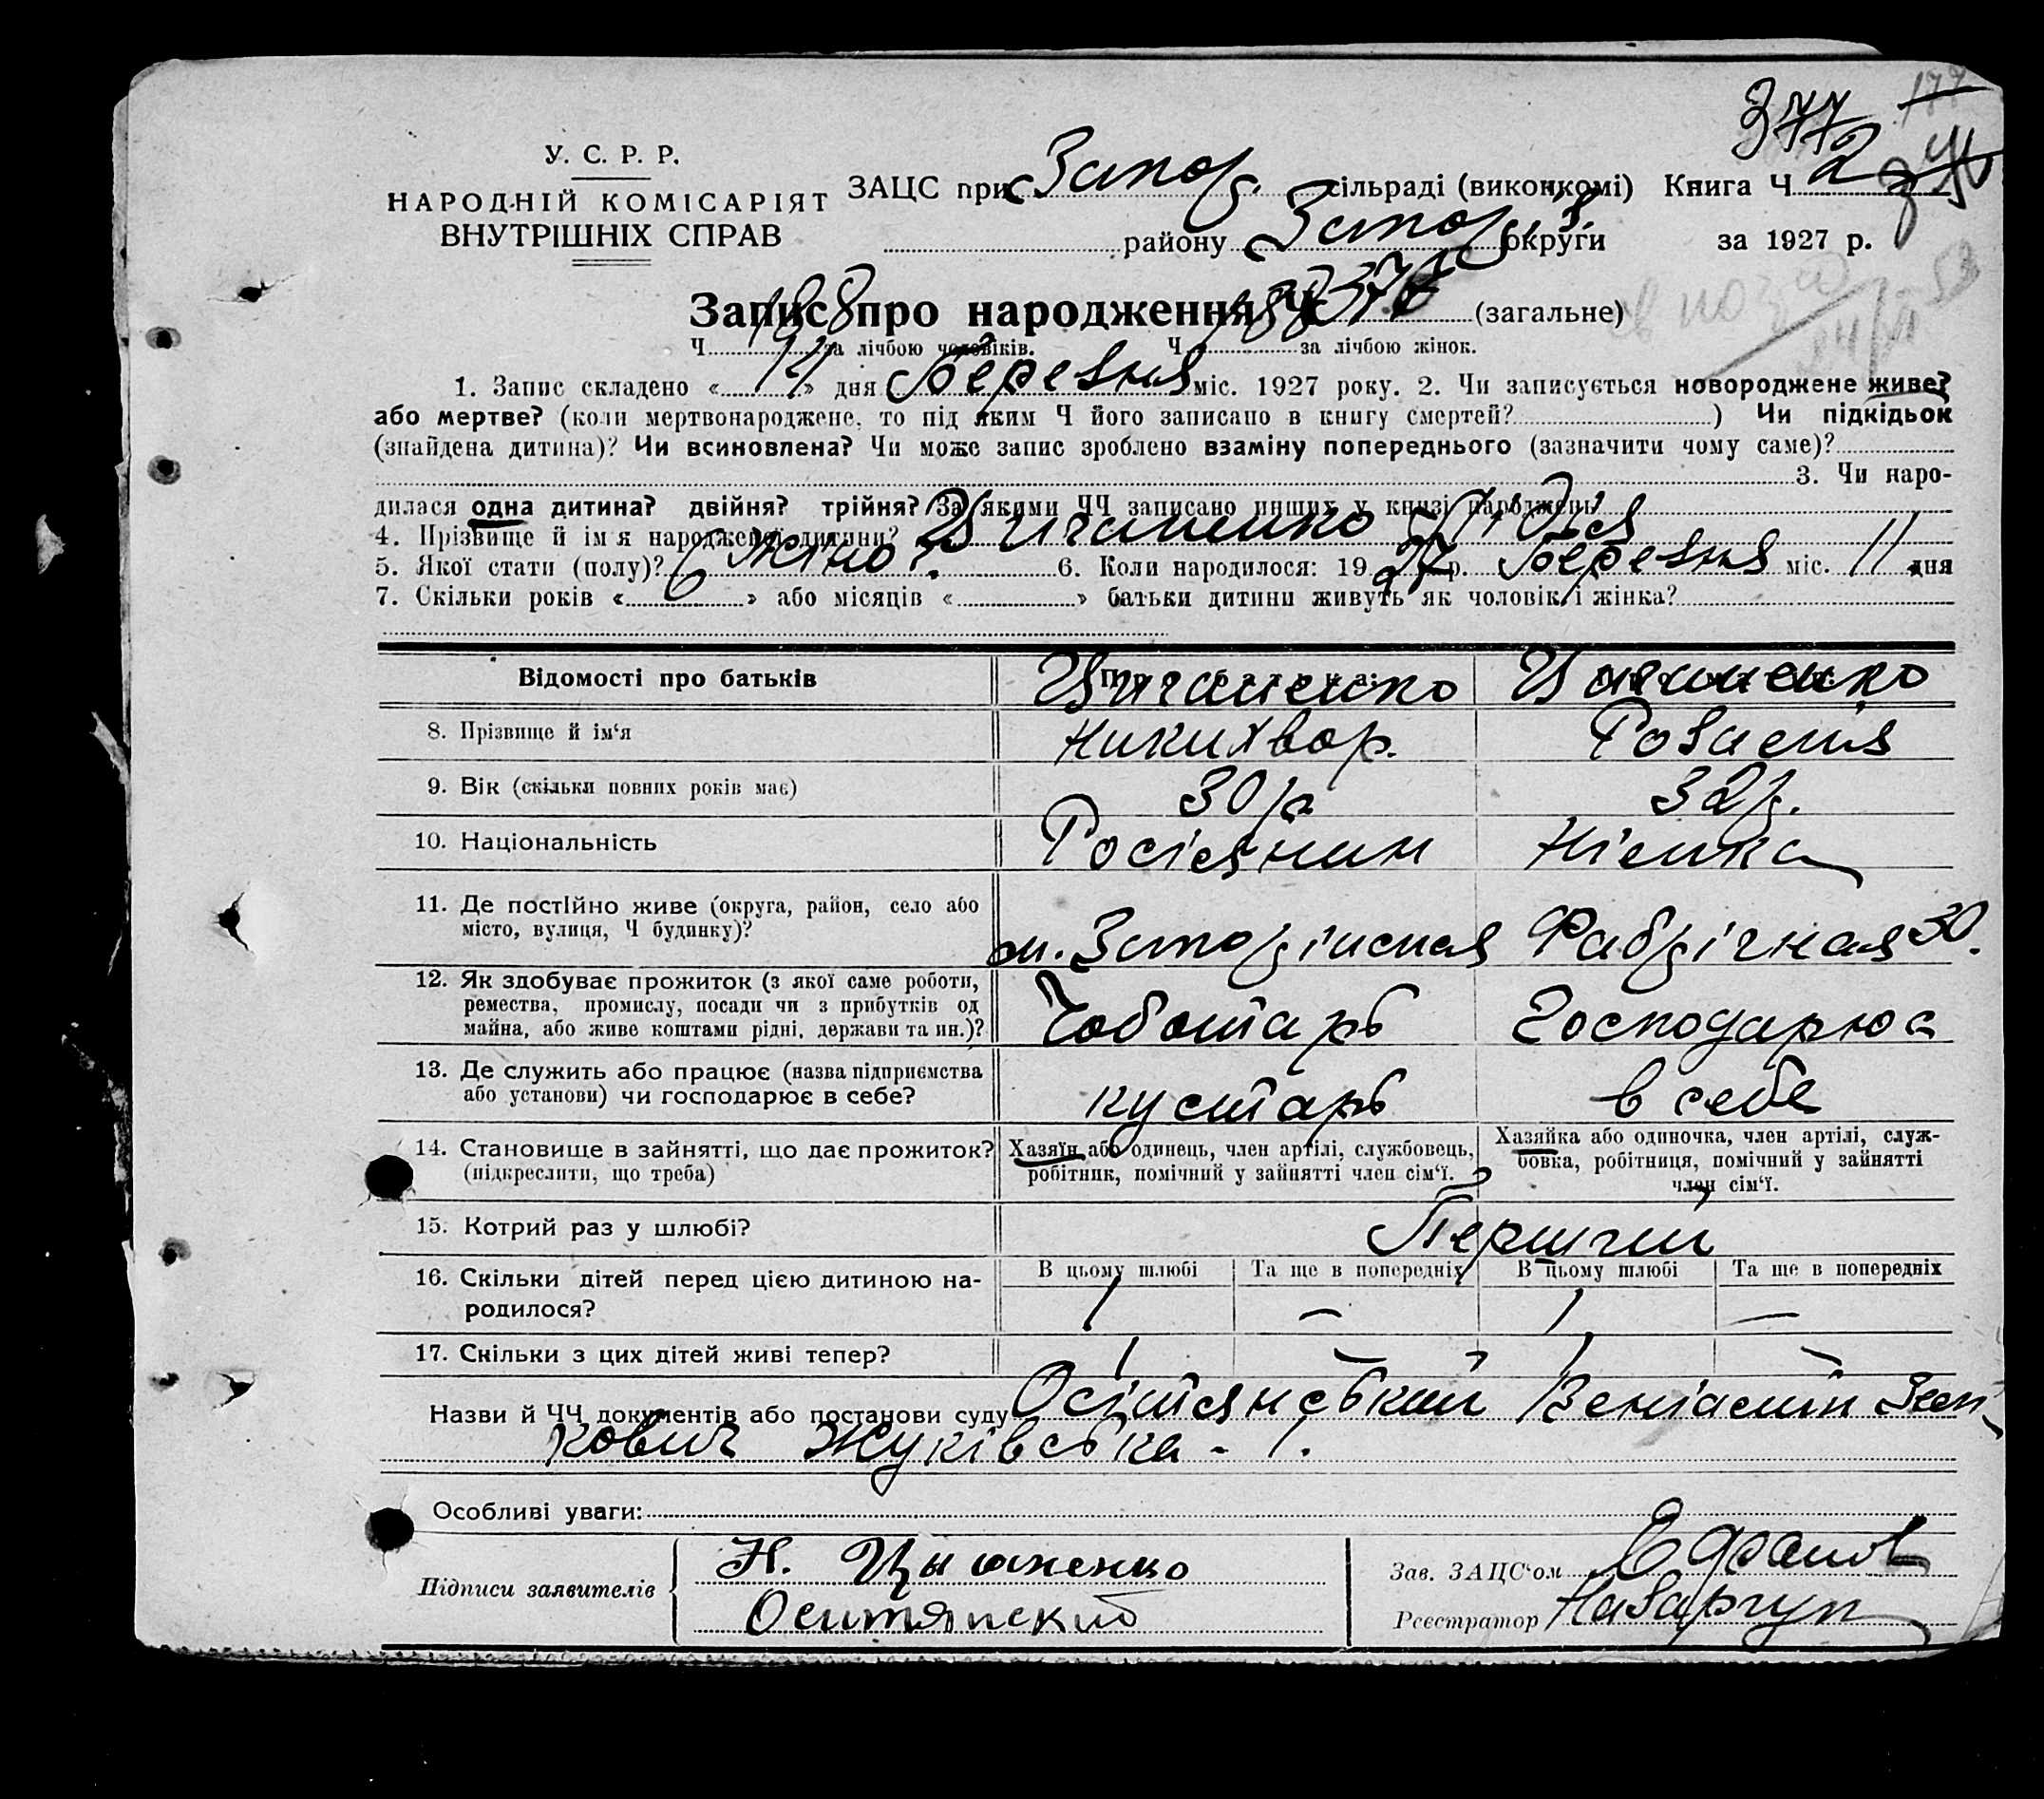 377
У. С. Р. Р.
НАРОДНІЙ КОМІСАРІЯТ
ВНУТРІШНІХ СПРАВ
ЗАЦС при Запор. сільраді (виконкомі) Книга Ч 2
району Запор. округи за 1927 р.
Запис про народження Ч 376 (загальне)
Ч 188 за лічбою чоловіків. Ч 188 за лічбою жінок.
1. Запис складено « 14 » дня Березня міс. 1927 року. 2. Чи записується новороджене живе?
або мертве? (коли мертвонароджене, то під яким Ч його записано в книгу смертей? ) Чи підкідьок
(знайдена дитина)? Чи всиновлена? Чи може запис зроблено взаміну попереднього (зазначити чому саме)?
3. Чи наро-
дилася одна дитина? двійня? трійня? За якими ЧЧ записано инших у книзі народжень
4. Прізвище й імя народженої дитини? Циганенко Лідія
5. Якої стати (полу)? Жіно. 6. Коли народилося: 1927 р. Березня міс. 11 дня
7. Скільки років « » або місяців « » батьки дитини живуть як чоловік і жінка?
Відомості про батьків Циганенко Циганенко
8. Прізвище й ім‘я Никихвор. Розалія
9. Вік (скільки повних років має) 30 р. 32 р.
10. Національність Росіянин Німка
11. Де постійно живе (округа, район, село або
місто, вулиця, Ч будинку)? м. Фабрічная 30.
12. Як здобуває прожиток (з якої саме роботи,
ремества, промислу, посади чи з прибутків од
майна, або живе коштами рідні, держави та ин.)? Чоботарь Господарює
13. Де служить або працює (назва підприємства
або установи) чи господарює в себе? кустарь в себе
14. Становище в зайнятті, що дає прожиток?
(підкреслити, що треба)
Хазяїн або одинець, член артілі, службовець,
робітник, помічний у зайнятті член сім‘ї.
Хазяйка або одиночка, член артілі, служ-
бовка, робітниця, помічний у зайнятті
член сім‘ї.
15. Котрий раз у шлюбі? Перший
16. Скільки дітей перед цією дитиною на-
родилося?
В цьому шлюбі Та ще в попередніх В цьому шлюбі Та ще в попередніх
1 — 1 —
17. Скільки з цих дітей живі тепер? 1 — 1 —
Назви й ЧЧ документів або постанови суду Осітянський Веніамін
Жуківська - 1.
Особливі уваги:
Підписи заявителів
Н. Цыганенко
Оситянский
Зав. ЗАЦС‘ом
Реєстратор